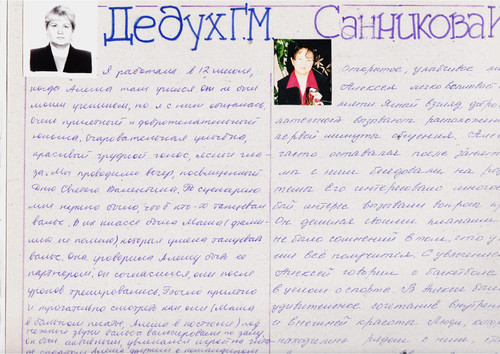 Дедух Г.М.
Я работала в 12 школе,
когда Алёша там учился. Он не был
моим учеником, но я с ним общалась.
Очень приятный и доброжелательный
юноша. Очаровательная улыбка,
красивый грудной голос, ясные гла-
за. Мы проводили вечер, посвященный
Дню Святого Валентина. По сценарию
мне нужно было, чтоб кто-то танцевал
вальс. В их классе была Маша (фами-
лию не помню), которая умела танцевать
вальс. Она уговорила Алёшу быть её
партнером. Он согласился, они после
уроков тренировались. Было приятно
и трогательно смотреть как они (Маша
в бальном платье, Алёша в костюме) под
нежные звуки вальса вальсировали по залу.
Он был активным, увлекался игрой на
Санникова
Открытое, улыбчивое
Алексея легко
памяти. Ясный взгляд, добро
желательной возраст расположен
первой минуты общения.
часто оставался после занят
мы с ним беседовали на
темы. Его интересовало много
бый интерес вызывали вопросы
Он делился своими планами
не было сомнений в том, что у
них все получится. С увлечением
Алексей говорил о баскетболе
в целом о спорте. В Алексее было
удивительное сочетание внутрен
и внешней красоты. Люди, кот
находились рядом с ним,